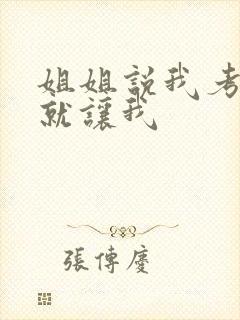 姐姐説我考
就讓我
張傳慶